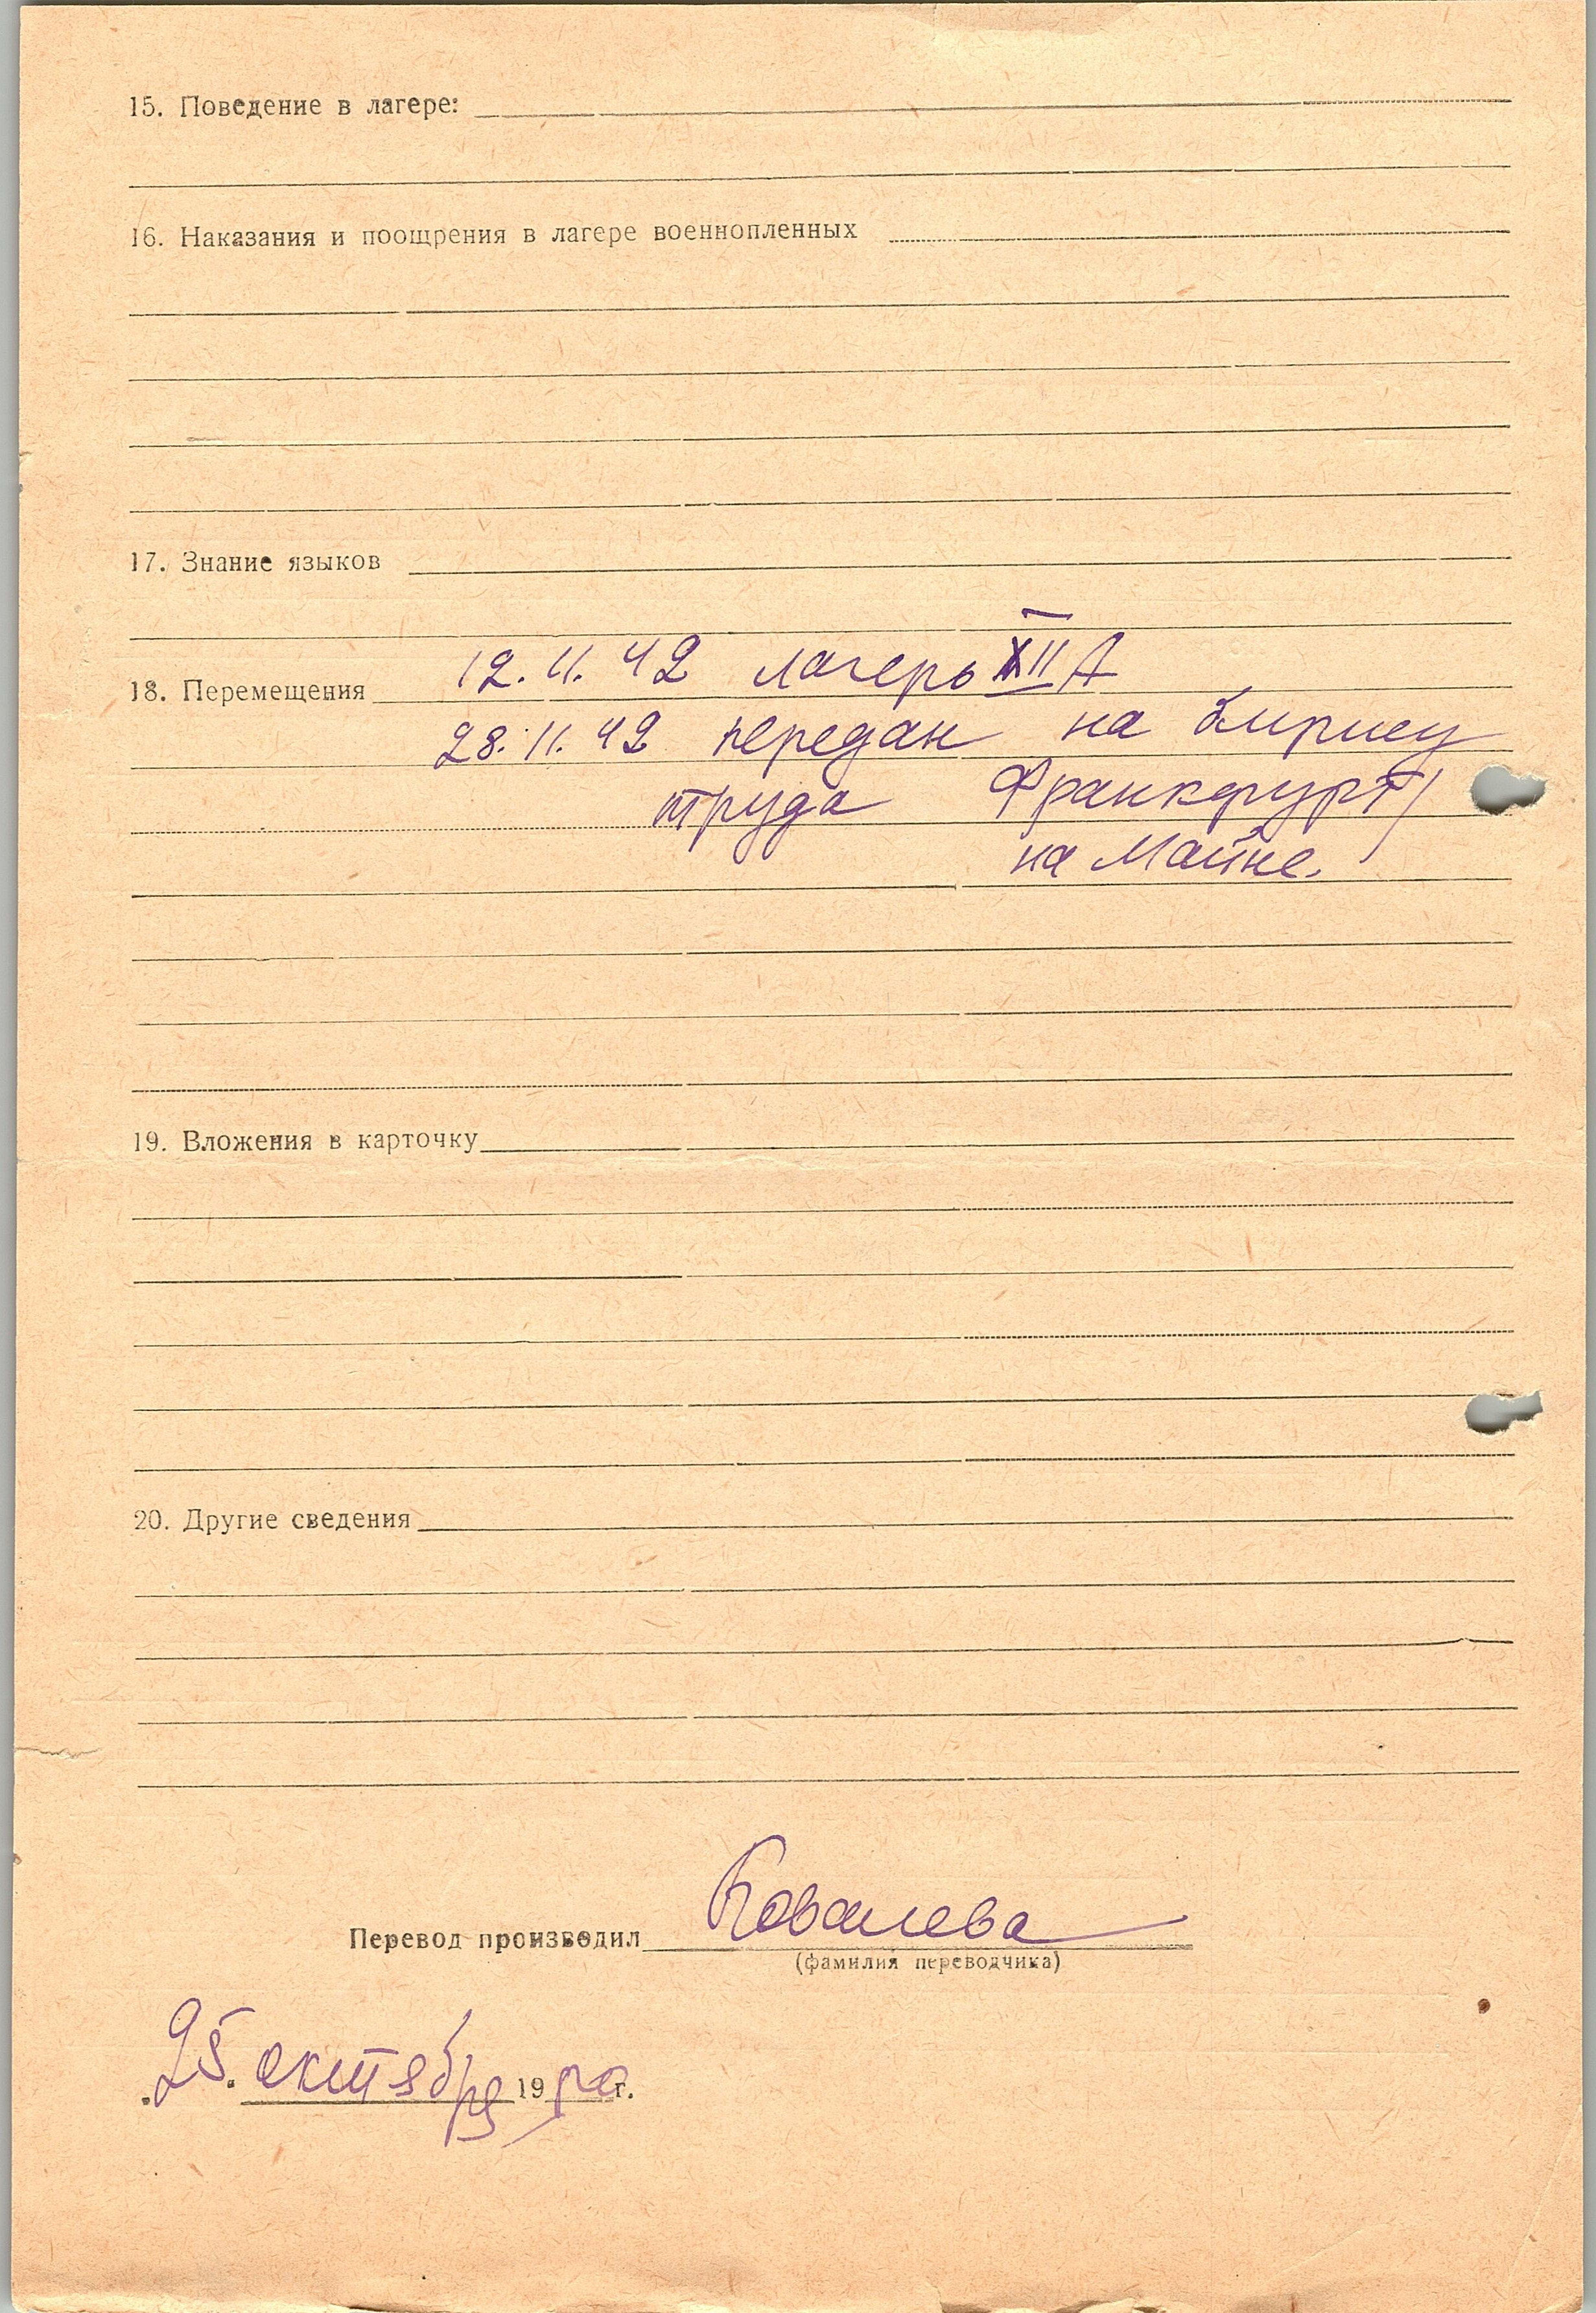 15. Поведение в лагере:
16. Наказания и поощрения в лагере военнопленных
17. Знание языков
12. 11. 42 лагерь XII А
18. Перемещения
28. 11. 42 передан на биржу
труда Франкфурт/
на Майне.
19. Вложения в карточку
20. Другие сведения
Перевод производил Ковалева
(фамилия переводчика)
25. октября 1950 г.